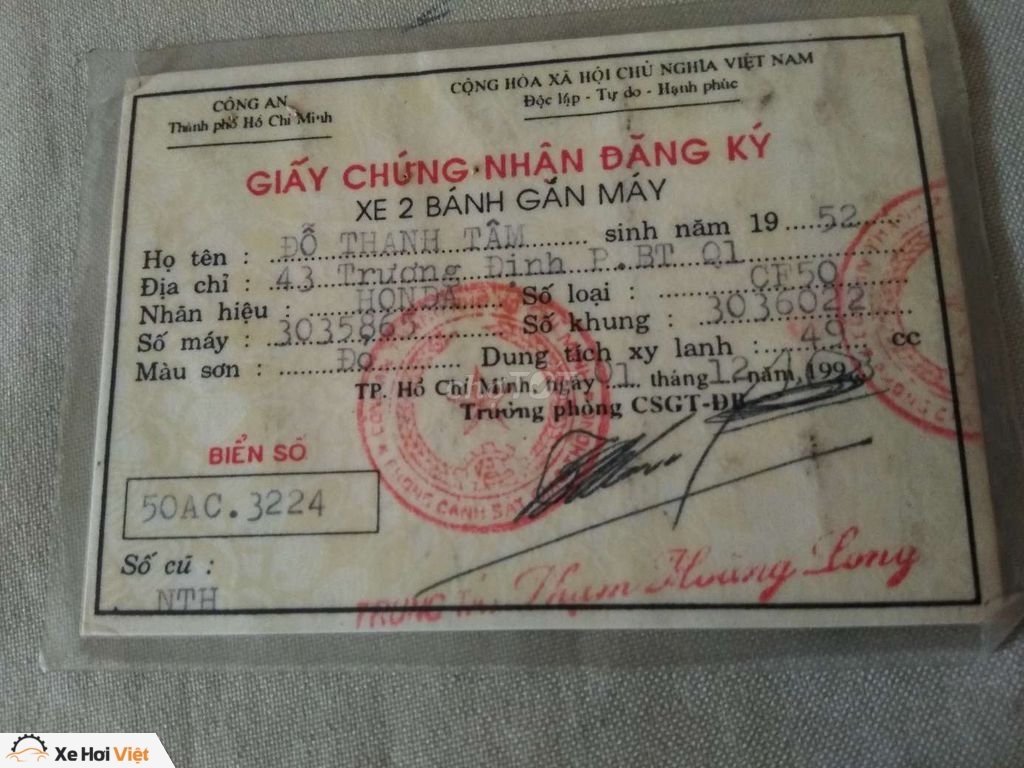 CÔNG AN
Thành phố Hồ Chí Minh
CỘNG HÒA XÃ HỘI CHỦ NGHĨA VIỆT NAM
Độc lập - Tự do - Hạnh phúc
GIẤY CHỨNG NHẬN ĐĂNG KÝ
XE 2 BÁNH GẮN MÁY
Họ tên : ĐỖ THANH TÂM sinh năm 19 52
Địa chỉ : 43 Trương Định P.BT Q1
Nhãn hiệu : HONDA Số loại : CF50
Số máy : 3035865 Số khung : 3036022
Màu sơn : Đo Dung tích xy lanh : 49 cc
TP. Hồ Chí Minh, ngày 01 tháng 12 năm 1993
Trưởng phòng CSGT-ĐB
BIỂN SỐ
50AC.3224
Số cũ :
NTH
TRUNG Phạm Hoàng Long
Xe Hơi Việt